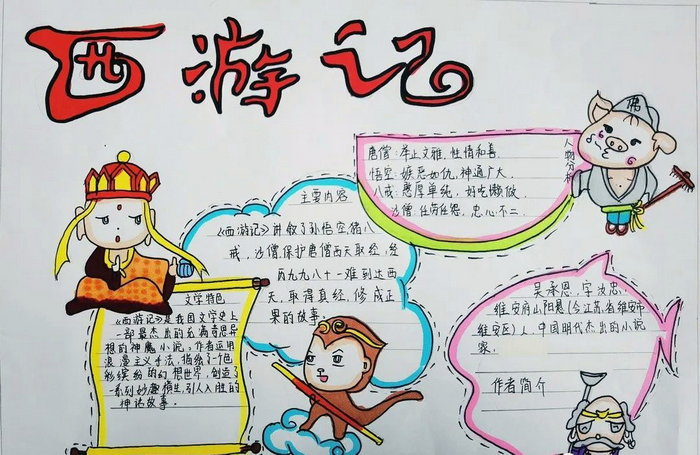 西游记
唐僧:举止文雅、性情和善.
悟空:嫉恶如仇,神通广大.
八戒:憨厚单纯,好吃懒做.
沙僧:任劳任怨,忠心不二.
人物分析
佛
主要内容
《西游记》讲叙了孙悟空,猪八
戒,沙僧,保护唐僧西天取经,经
历九九八十一难到达西
天,取得真经,修成正
果的故事.
文学特色
《西游记》是我国文学史上
一部最杰出的充满奇思异
想的神魔小说.作者运用
浪漫主义手法,描绘了一个色
彩缤纷的幻想世界,创造了
一系列妙趣横生,引人入胜的
神话故事.
吴承恩,字汝忠.
维安府山阳县(今江苏省维安市
维安区)人,中国明代杰出的小说
家.
作者简介